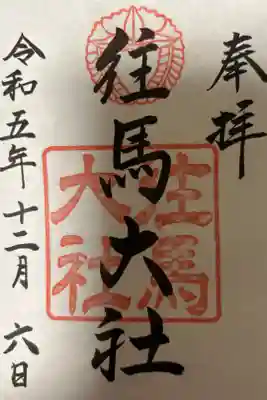 奉拝
往馬大社
往馬
大社
令和五年十二月六日